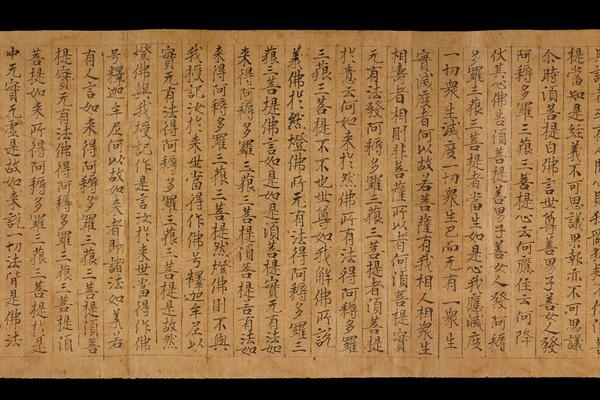 提當知是經義不可思議果報亦不可思議
尒時須菩提白佛言世尊善男子善女人發
阿耨多羅三藐三菩提心云何應住云何降
伏其心佛告須菩提善男子善女人發阿耨
多羅三藐三菩提者當生如是心我應滅度
一切衆生滅度一切衆生已而无有一衆生
實滅度者何以故若菩薩有我相人相衆生
相壽者相則非菩薩所以者何須菩提實
无有法發阿耨多羅三藐三菩提者須菩提
於意云何如来於然佛所有法得阿耨多羅
三藐三菩提不不也世尊如我解佛所說
義佛於然燈佛所无有法得阿耨多羅三
藐三菩提佛言如是如是須菩提實无有法如
来得阿耨多羅三藐三菩提須菩提若有法如
来得阿耨多羅三藐三菩提然燈佛則不與
我授記汝於来世當得作佛号釋迦牟尼以
實无有法得阿耨多羅三藐三菩提是故然
燈佛與我授記作是言汝於来世當得作佛
号釋迦牟尼何以故如来者即諸法如義若
有人言如来得阿耨多羅三藐三菩提須菩
提實无有法佛得阿耨多羅三藐三菩提須
菩提如来所得阿耨多羅三藐三菩提於是
中无實无虛是故如来說一切法皆是佛法